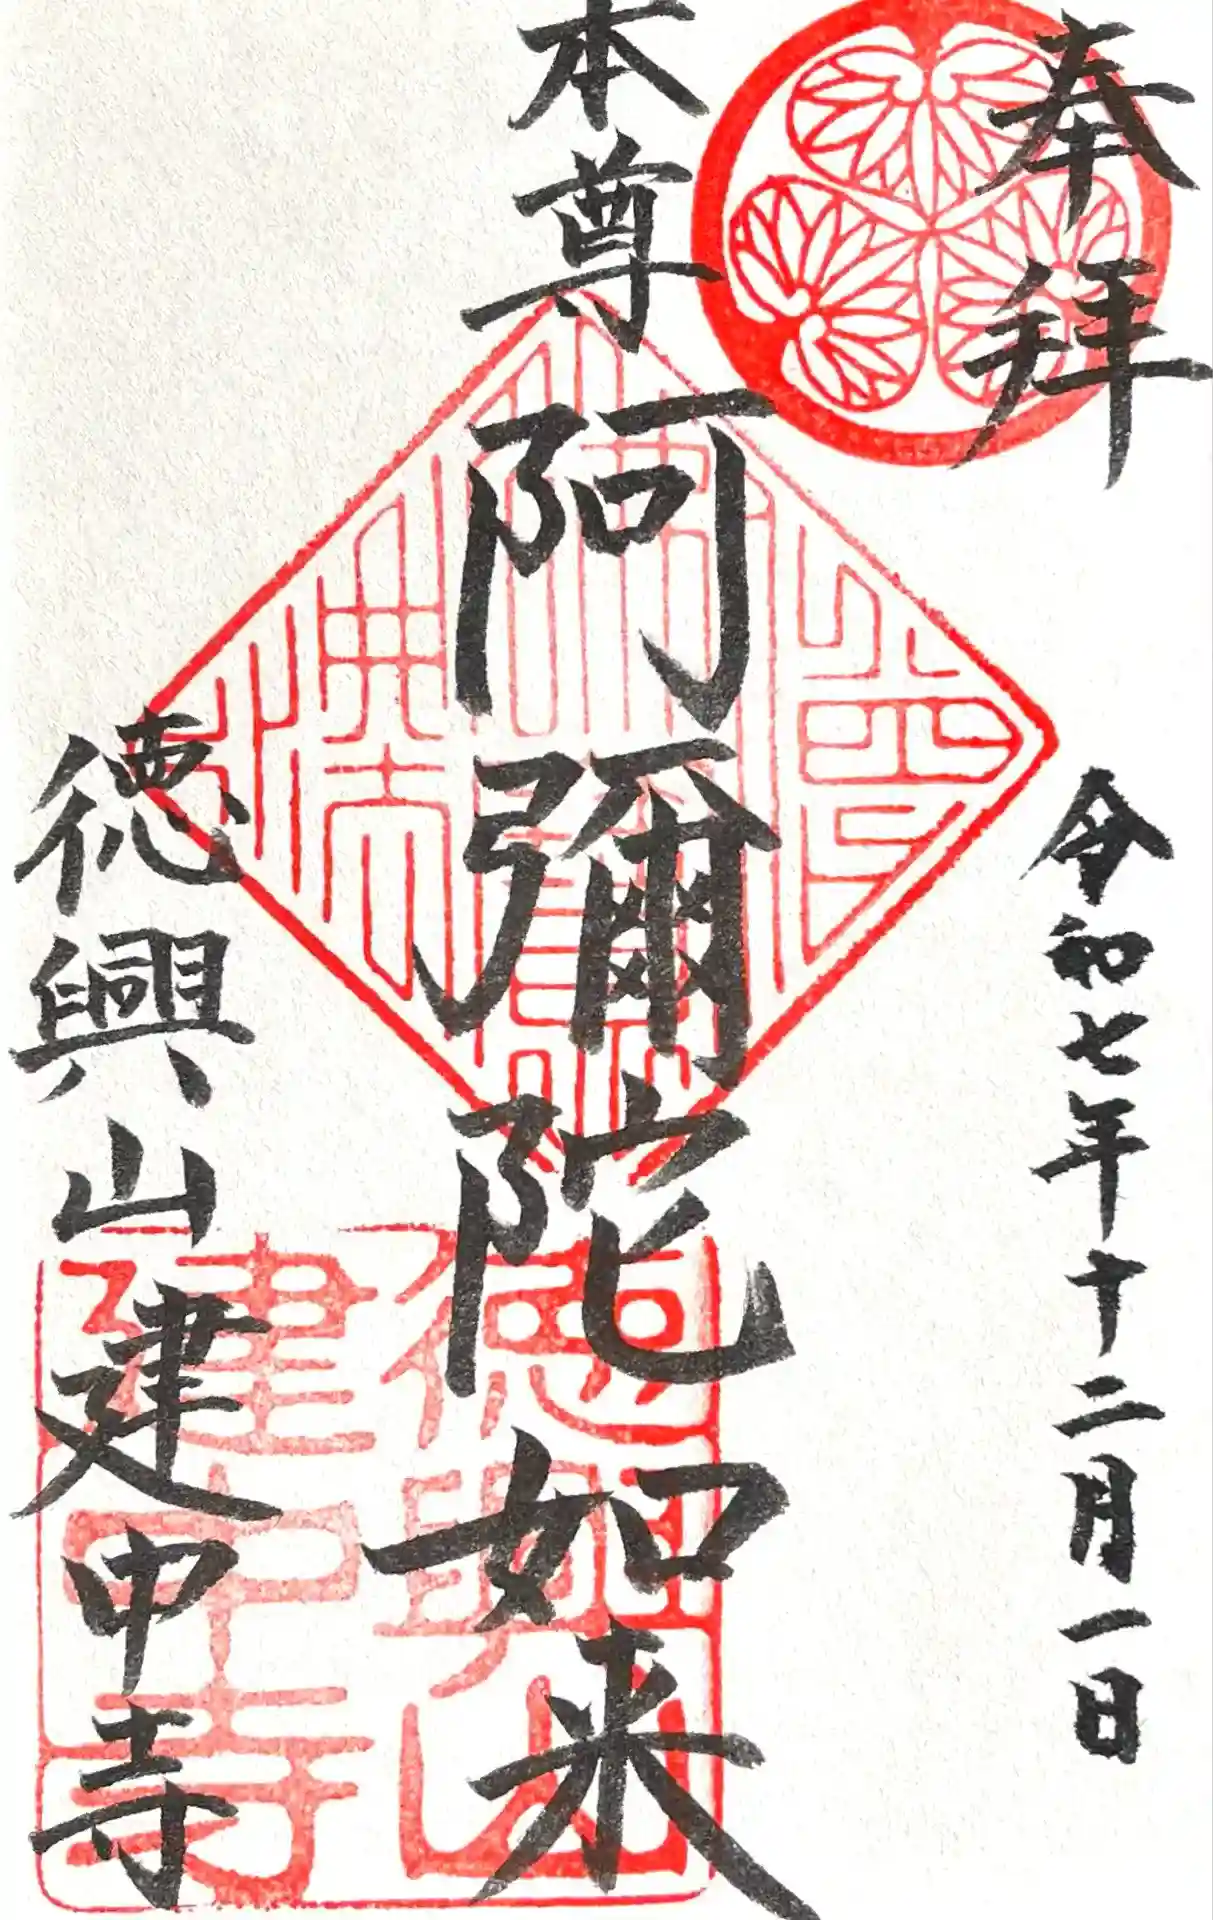 奉拝
令和七年十二月一日
本尊
阿彌陀如来
徳興山建中寺
佛法僧寶
徳興山
建中寺